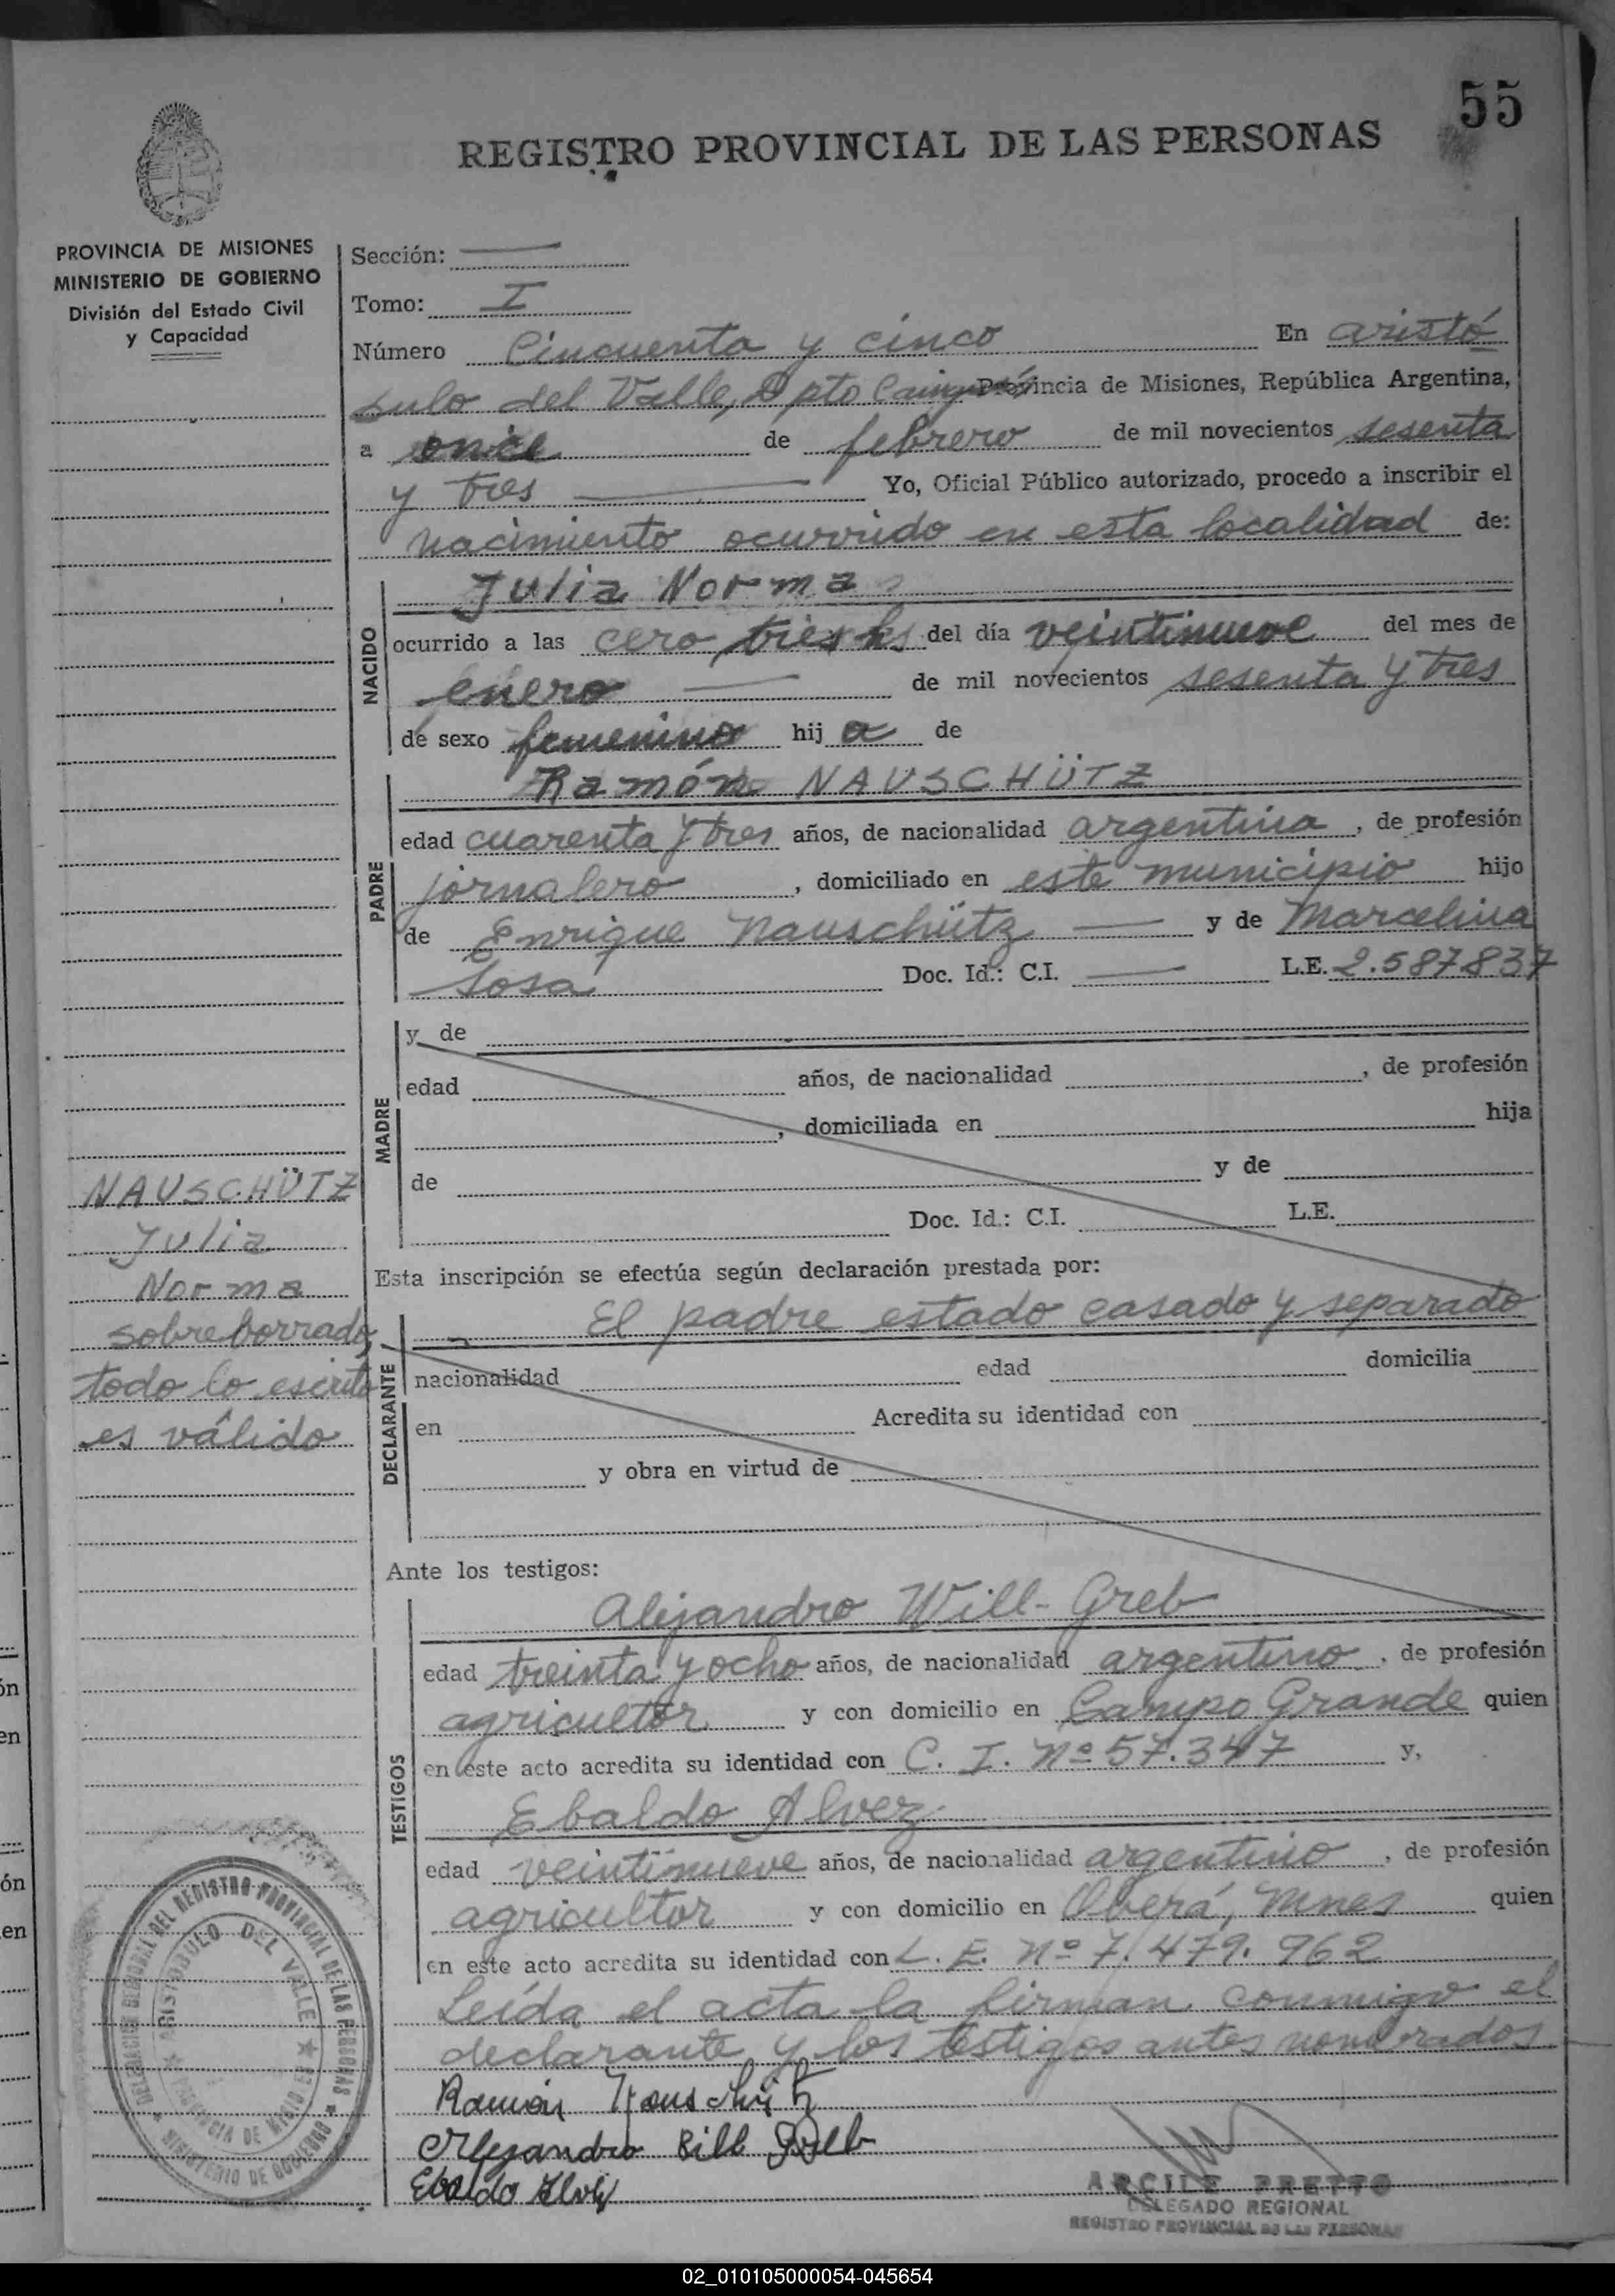 55
REGISTRO PROVINCIAL DE LAS PERSONAS
PROVINCIA DE MISIONES
MINISTERIO DE GOBIERNO
División del Estado Civil
y Capacidad
Sección:
Tomo: I
Número Cincuenta y cinco En aristó
bulo del Valle, Dpto Cainguás Provincia de Misiones, República Argentina,
a once de febrero de mil novecientos sesenta
y tres Yo, Oficial Público autorizado, procedo a inscribir el
nacimiento ocurrido en esta localidad de:
NACIDO
Julia Norma
ocurrido a las cero tres hs del día veintinueve del mes de
enero de mil novecientos sesenta y tres
de sexo femenino hij a de
PADRE
Ramón NAUSCHÜTZ
edad cuarenta y tres años, de nacionalidad argentina, de profesión
jornalero, domiciliado en este municipio hijo
de Enrique Nauschütz y de Marcelina
Sosa Doc. Id.: C.I. L.E. 2.587837
MADRE
y de
edad años, de nacionalidad , de profesión
, domiciliada en hija
de y de
Doc. Id.: C.I. L.E.
NAUSCHÜTZ
Julia
Norma
sobreborrado,
todo lo escrito
es válido
Esta inscripción se efectúa según declaración prestada por:
DECLARANTE
El padre estado casado y separado
nacionalidad edad domicilia
en Acredita su identidad con
y obra en virtud de
Ante los testigos:
TESTIGOS
Alejandro Will-Greb
edad treinta y ocho años, de nacionalidad argentino, de profesión
agricultor y con domicilio en Campo Grande quien
en este acto acredita su identidad con C. I. Nº 57.347 y,
Ebaldo Alvez
edad veintinueve años, de nacionalidad argentino, de profesión
agricultor y con domicilio en Oberá, Mnes quien
en este acto acredita su identidad con L. E. Nº 7.479.962
Leída el acta la firman conmigo el
declarante y los testigos antes nombrados
Ramón Nauschütz
Alejandro Bill Greb
Ebaldo Alvez
DELEGACION REGIONAL DEL REGISTRO PROVINCIAL DE LAS PERSONAS
ARISTOBULO DEL VALLE
PROVINCIA DE MISIONES
MINISTERIO DE GOBIERNO
ARCILE PRETTO
DELEGADO REGIONAL
REGISTRO PROVINCIAL DE LAS PERSONAS
02_010105000054-045654